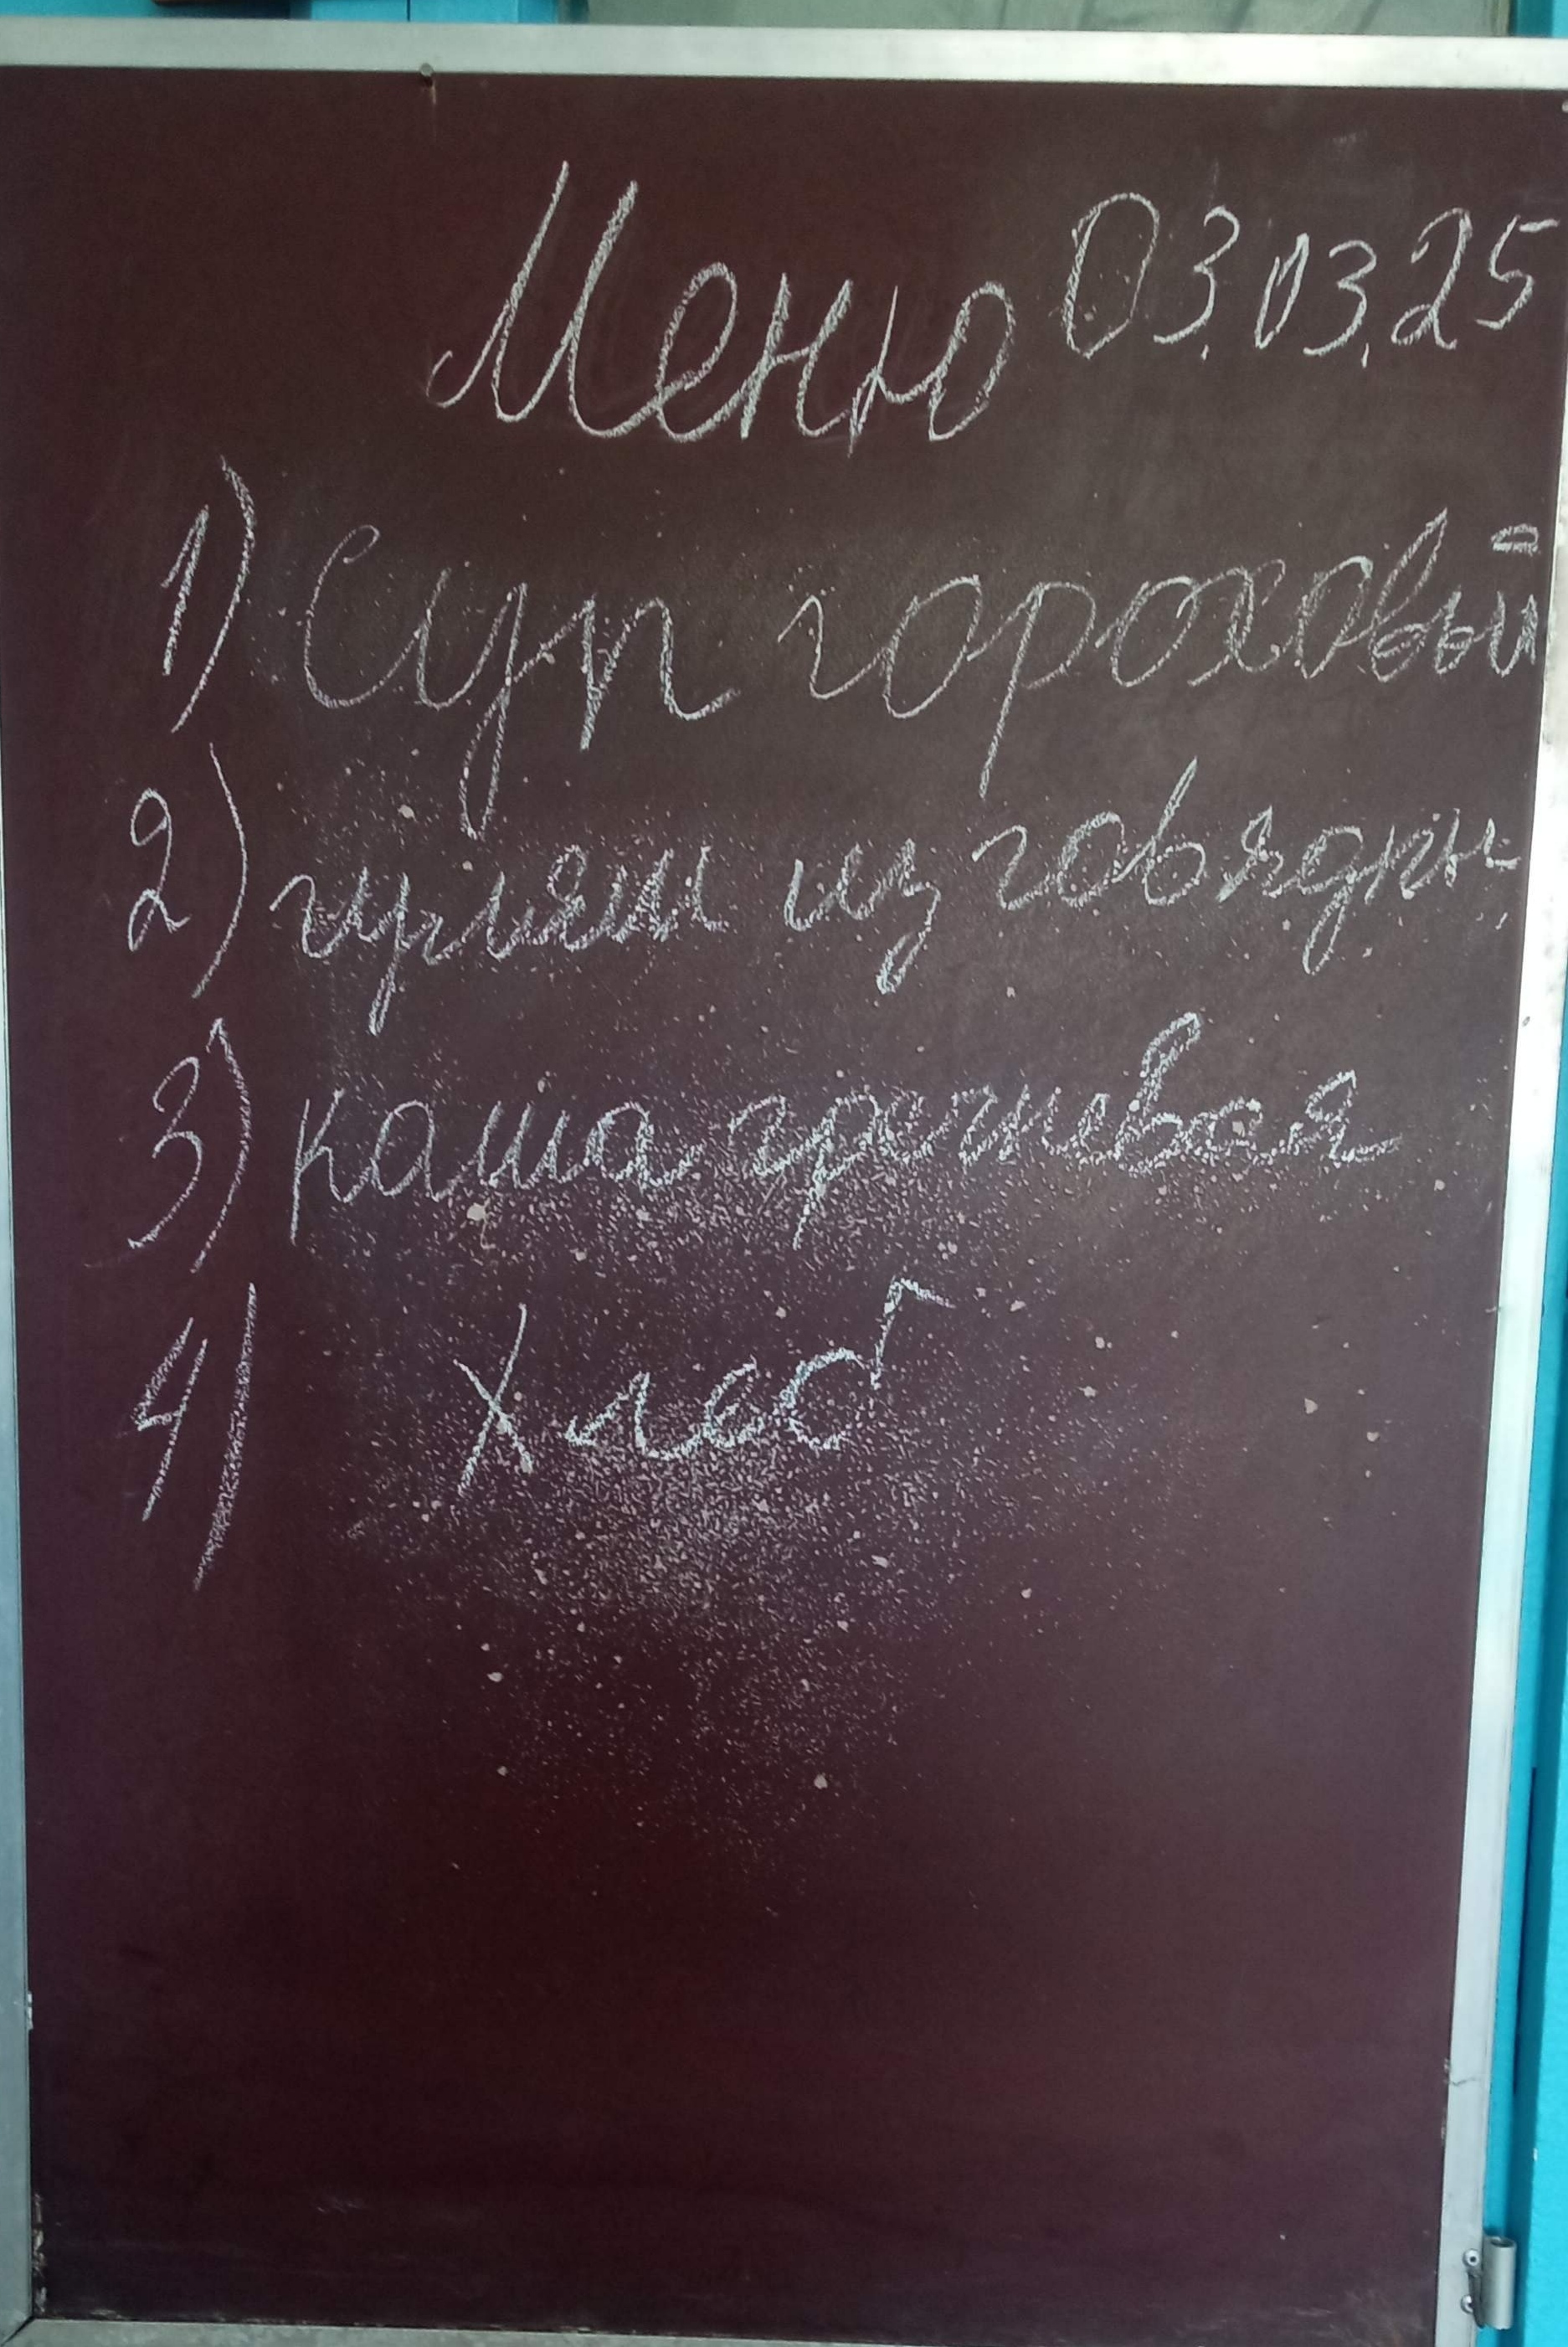 Меню 03.03.25
1) Суп гороховый
2) гуляш из говядины
3) каша гречневая
4) хлеб